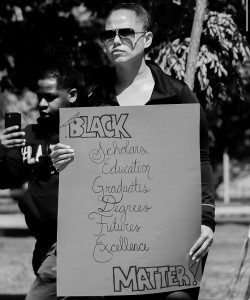 BLACK
Scholars
Education
Graduates
Degrees
Futures
Excellence
MATTER!